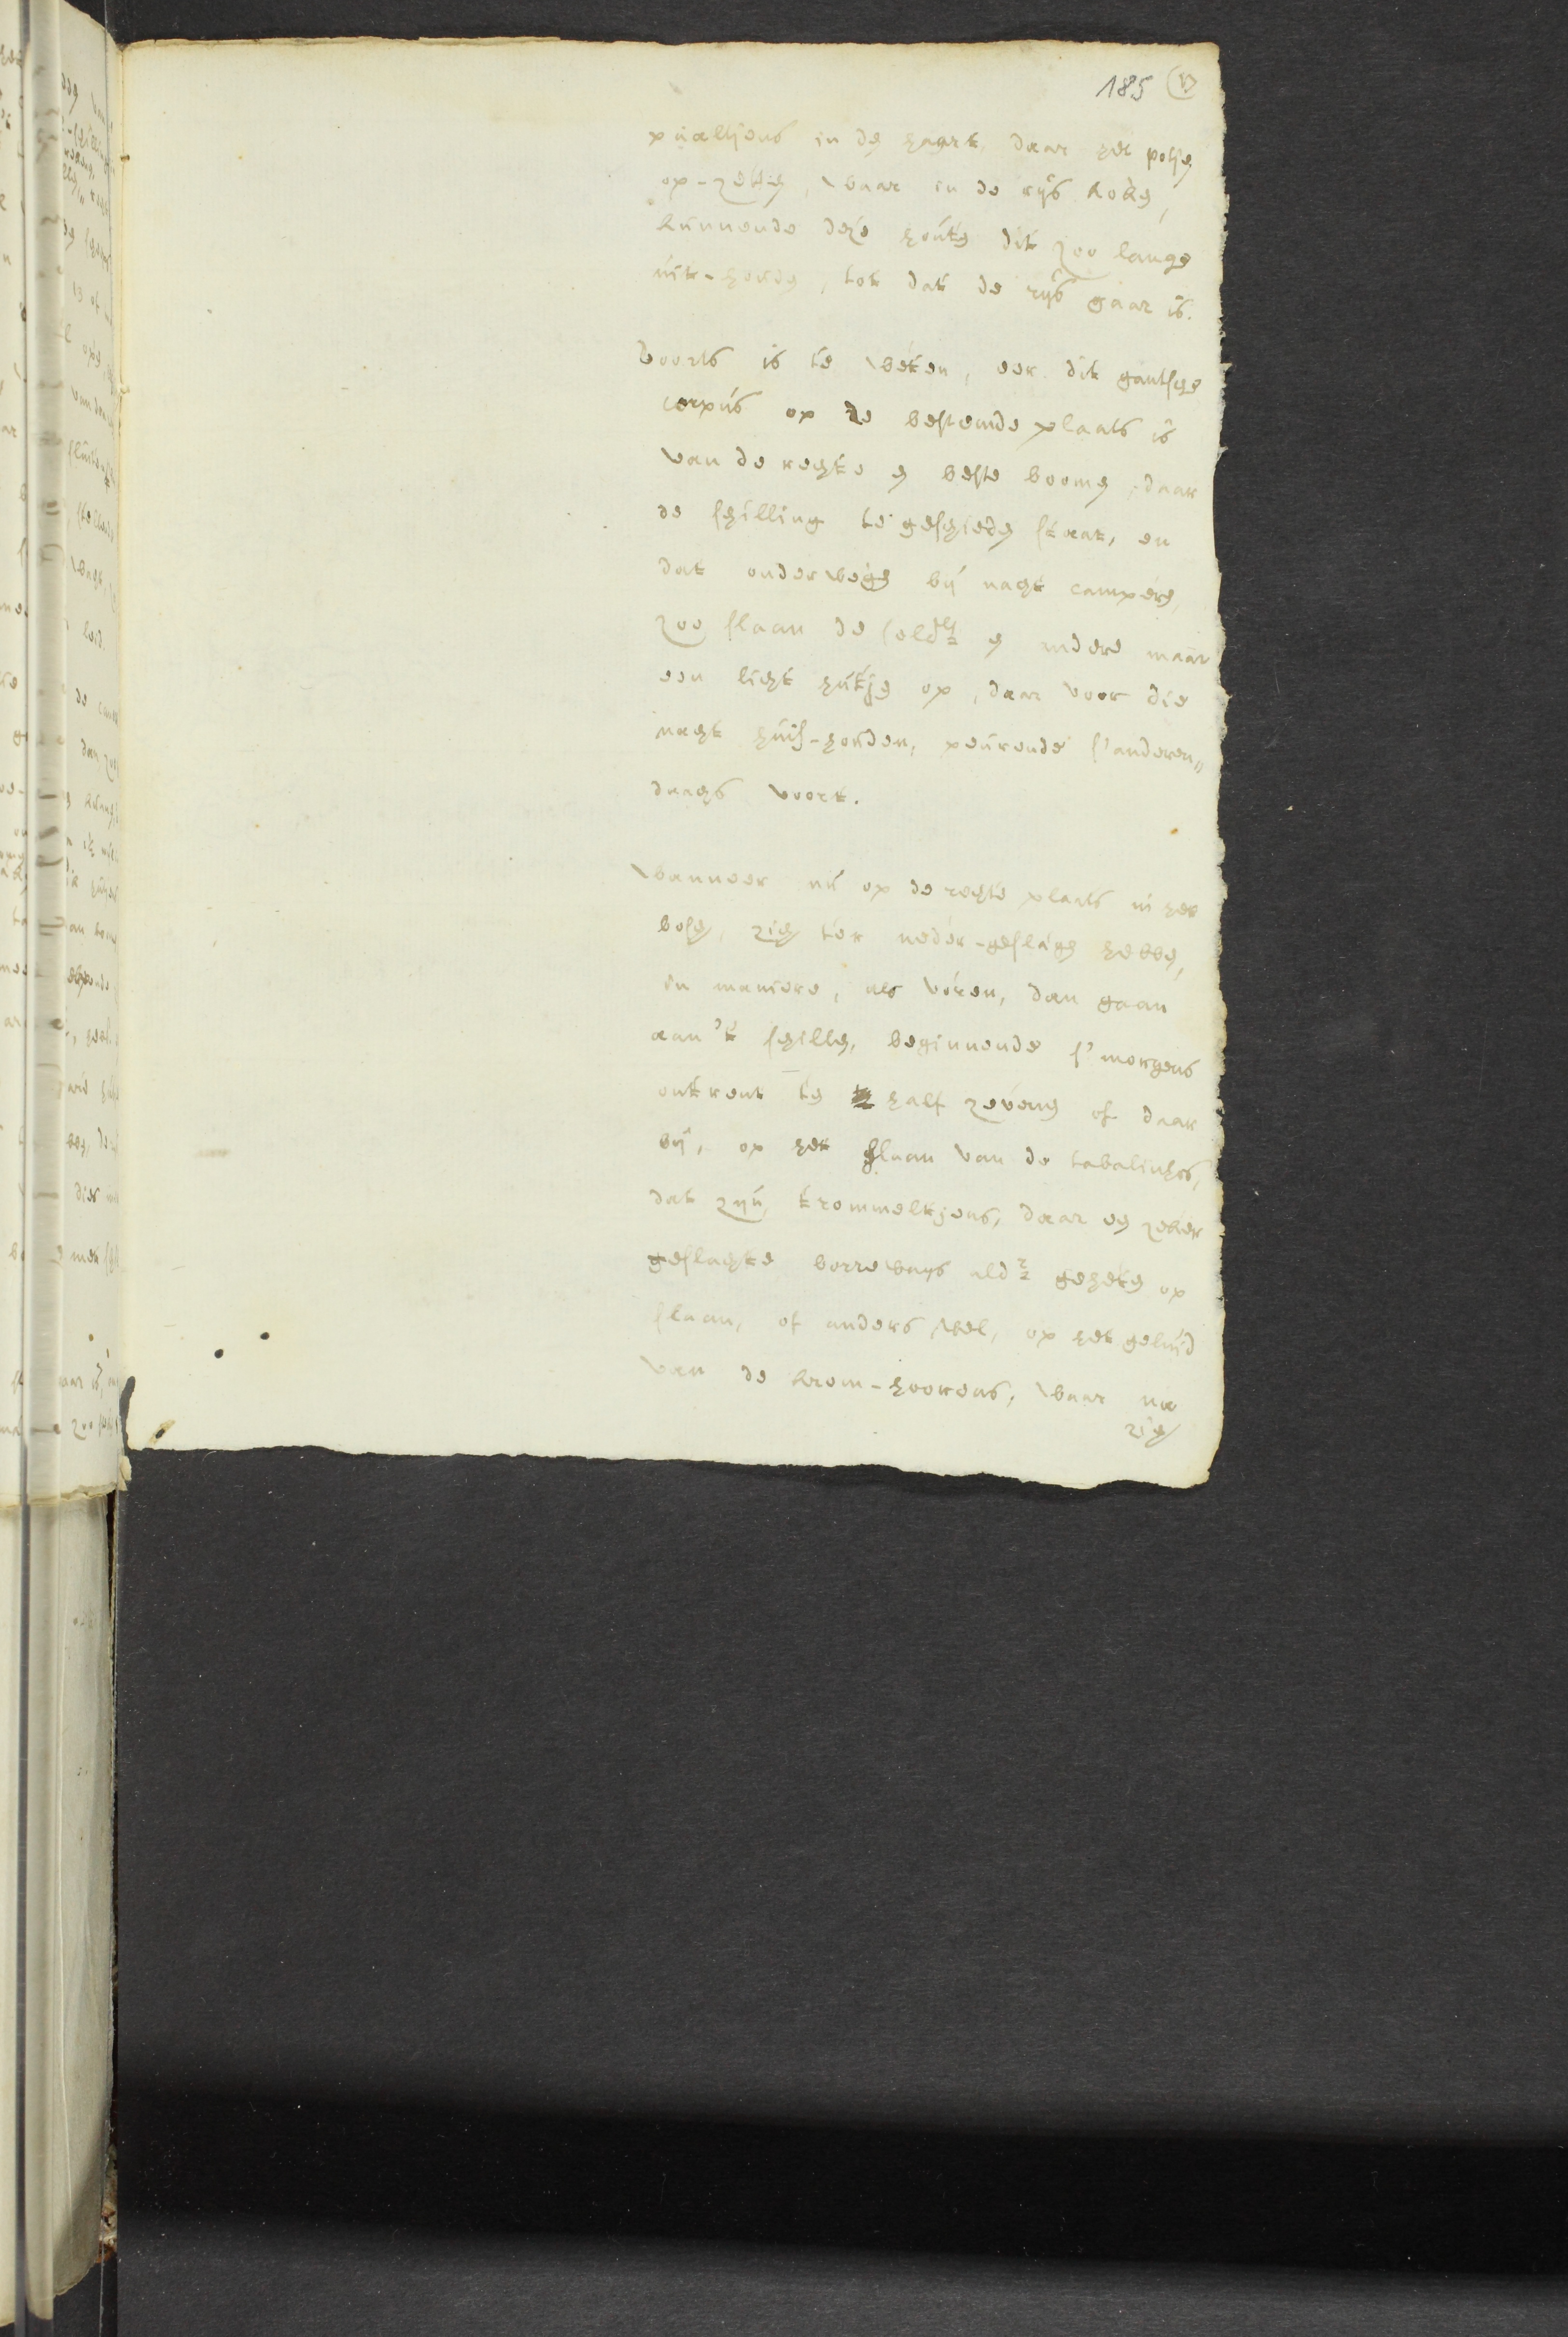 185 17
paaltjens in de haart, daar het potje
op-zetten, waar in de rijs koken,
kunnende deze houte dit zoo lange
uit-houden, tot dat de rijs gaar is.
Voorts is te weten, eer dit gantsche
corpus op de bestemde plaats is
van de rechte en beste boomen, daar
de schilling te geschieden staat, en
dat onderwegen bij nacht camperen,
zoo slaan de en andere maar
een licht hutje op, daar voor die
nacht huis-houden, peurende s'anderen„
daachs voort.
Wanneer nu op de rechte plaats in het
bosch, zich ter neder-geslagen hebben,
in maniere, als voren, dan gaan
aan 't schillen, beginnende s'morgens
ontrent te half zevenen of daar
bij, op het slaan van de tabalinhos,
dat zijn trommeltjens, daar een zeker
geslachte berrewaijs aldr geheten op
slaan, of anders wel, op het geluid
van de krom-hoorens, waar na
zich